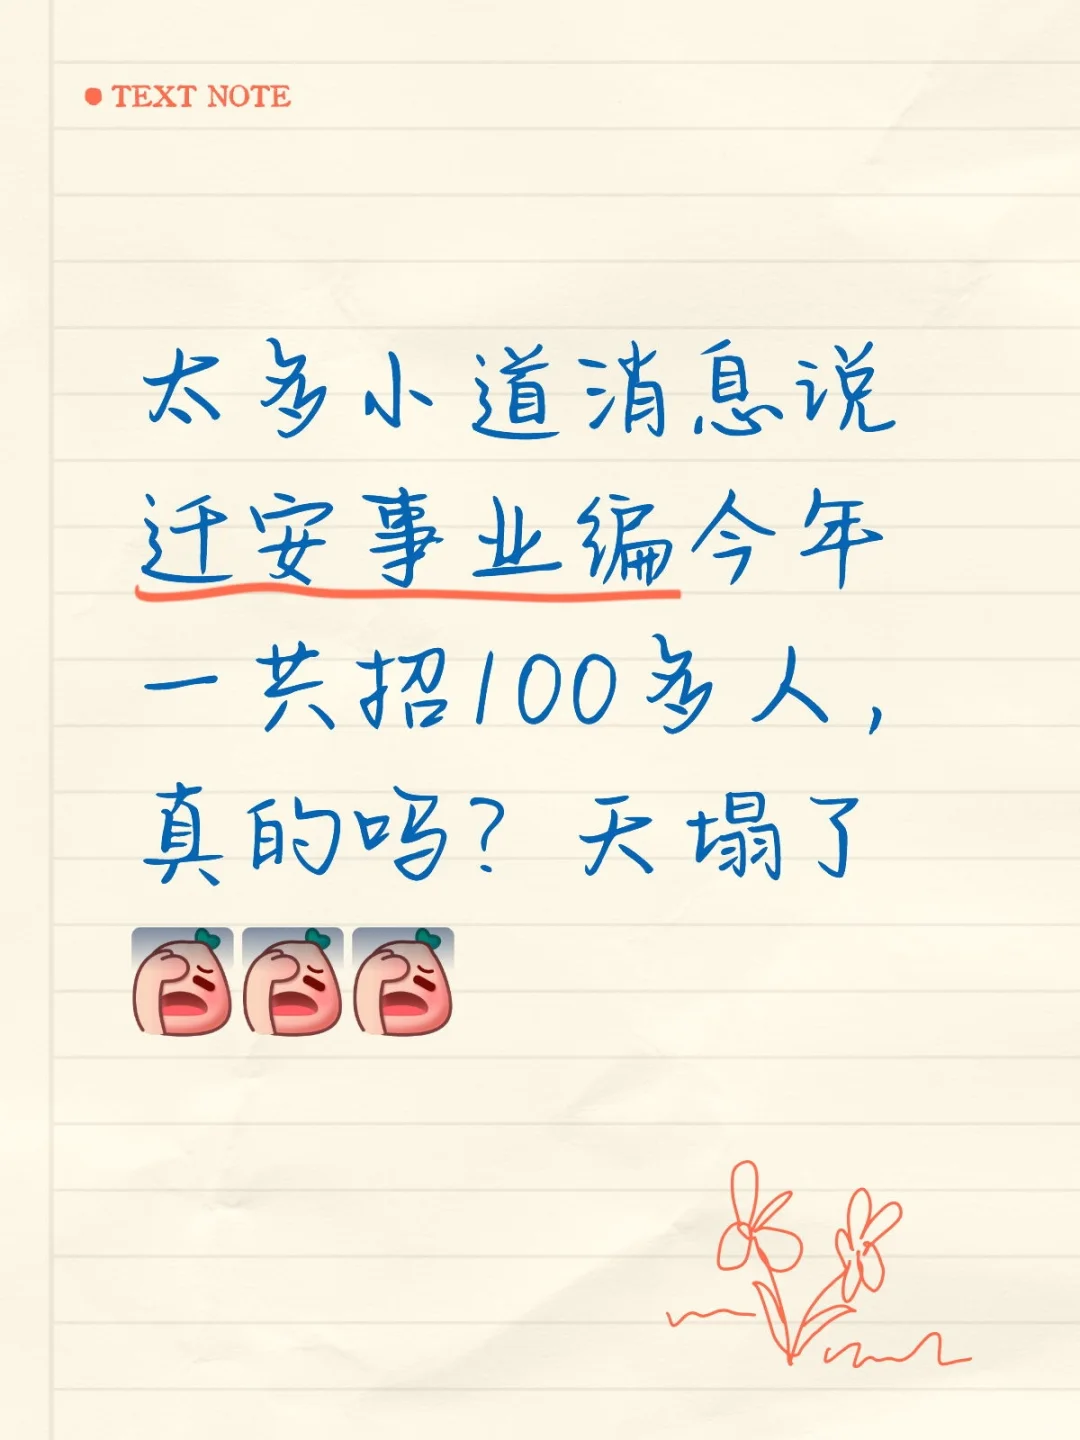 TEXT NOTE
太多小道消息说
迁安事业编今年
一共招100多人，
真的吗？天塌了